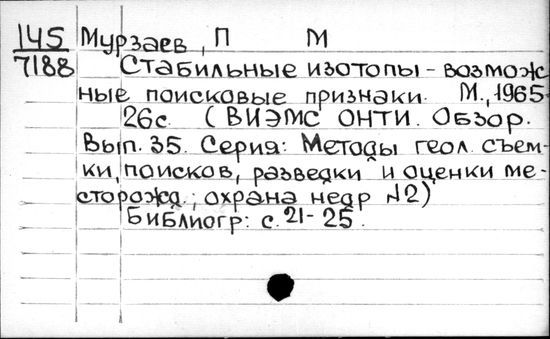 145 Мурзаев, П М
7188 Стабильные изотопы - возмож-
ные поисковые признаки. М., 1965-
26с. (ВИЭМС ОНТИ. Обзор.
Вып. 35. Серия: Методы геол. съем-
ки, поисков, разведки и оценки ме-
сторожд.; охрана недр №2)
Библиогр: с. 21-25.